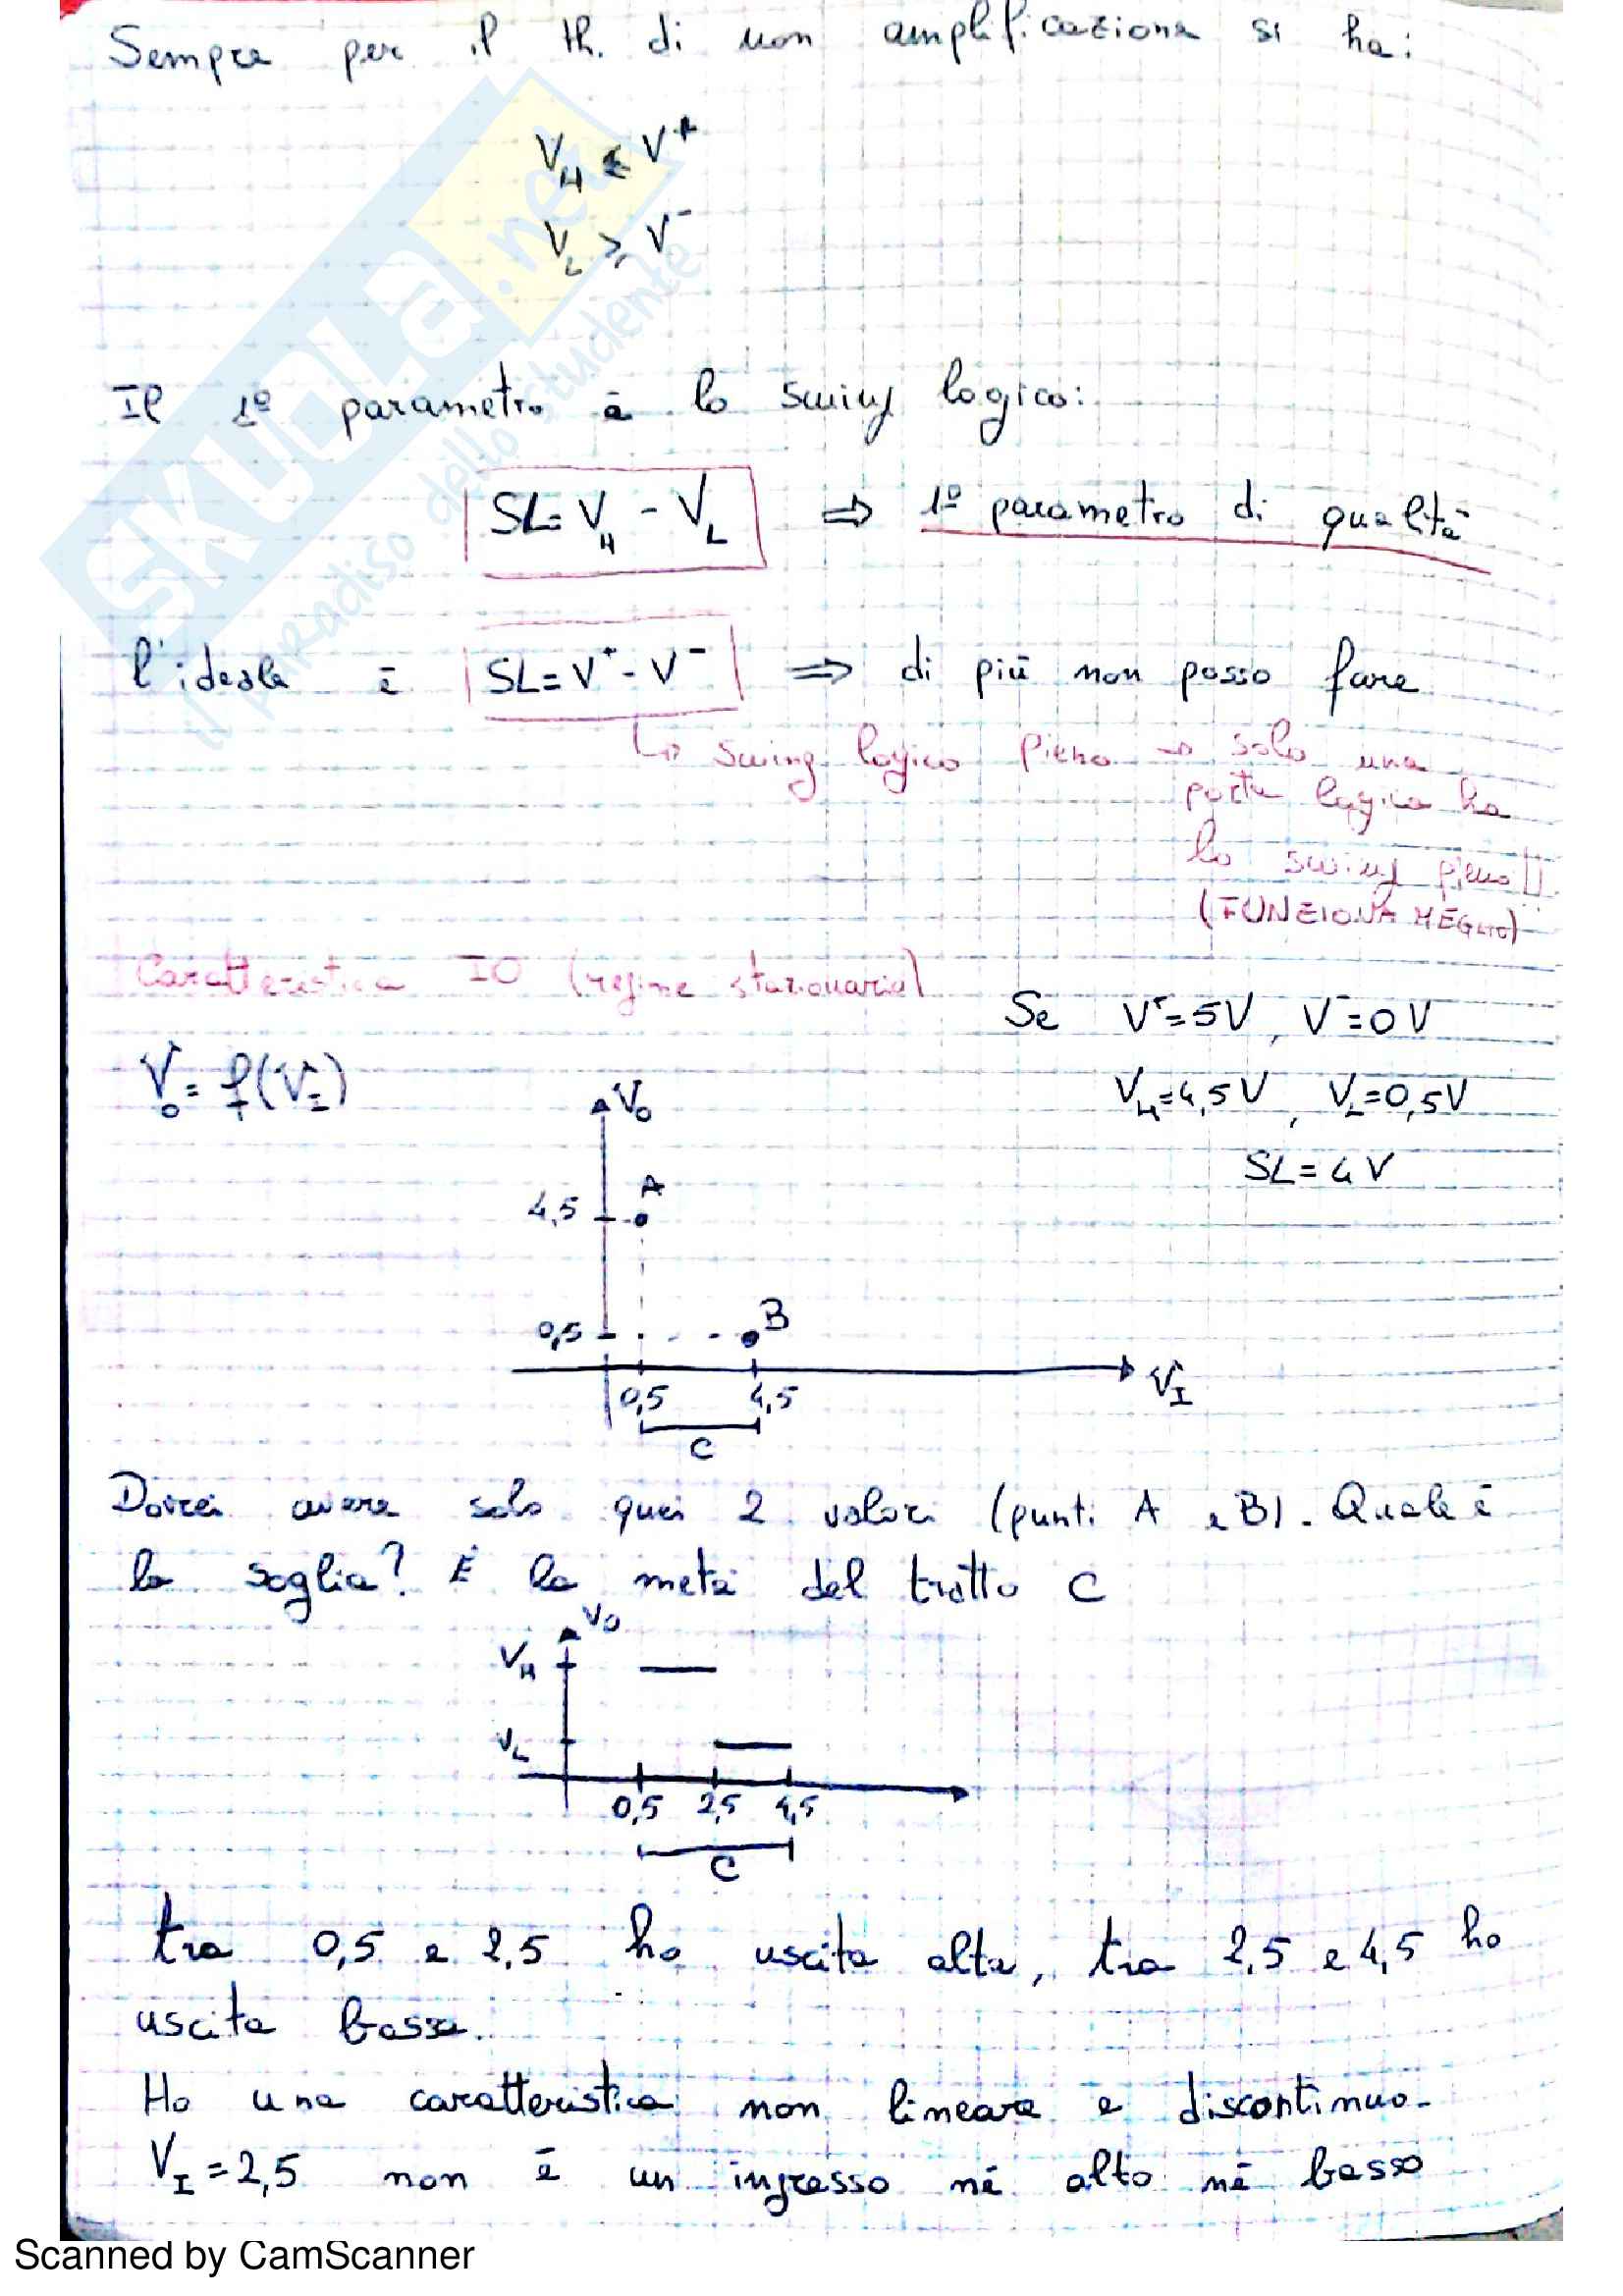 Sempre per il th. di non amplificazione si ha:
V_H ≤ V⁺
V_L ≥ V⁻
SKUOLA.net
il paradiso dello studente
Il 1º parametro è lo swing logico:
SL = V_H - V_L ⇒ 1º parametro di qualità
l'ideale è SL = V⁺ - V⁻ ⇒ di più non posso fare
↳ swing logico pieno → solo una
porta logica ha
lo swing pieno!!
(FUNZIONA MEGLIO)
Caratteristica IO (regime stazionario)
Se V⁺=5V, V⁻=0V
V_O = f(V_I)
V_H=4,5V, V_L=0,5V
SL=4V
V_O
A
4,5
B
0,5
V_I
0,5 4,5
C
Dovrei avere solo quei 2 valori (punti A e B). Quale è
la soglia? È la metà del tratto C
V_O
V_H
V_L
0,5 2,5 4,5
C
tra 0,5 e 2,5 ho uscita alta, tra 2,5 e 4,5 ho
uscita bassa.
Ho una caratteristica non lineare e discontinua.
V_I = 2,5 non è un ingresso né alto né basso
Scanned by CamScanner